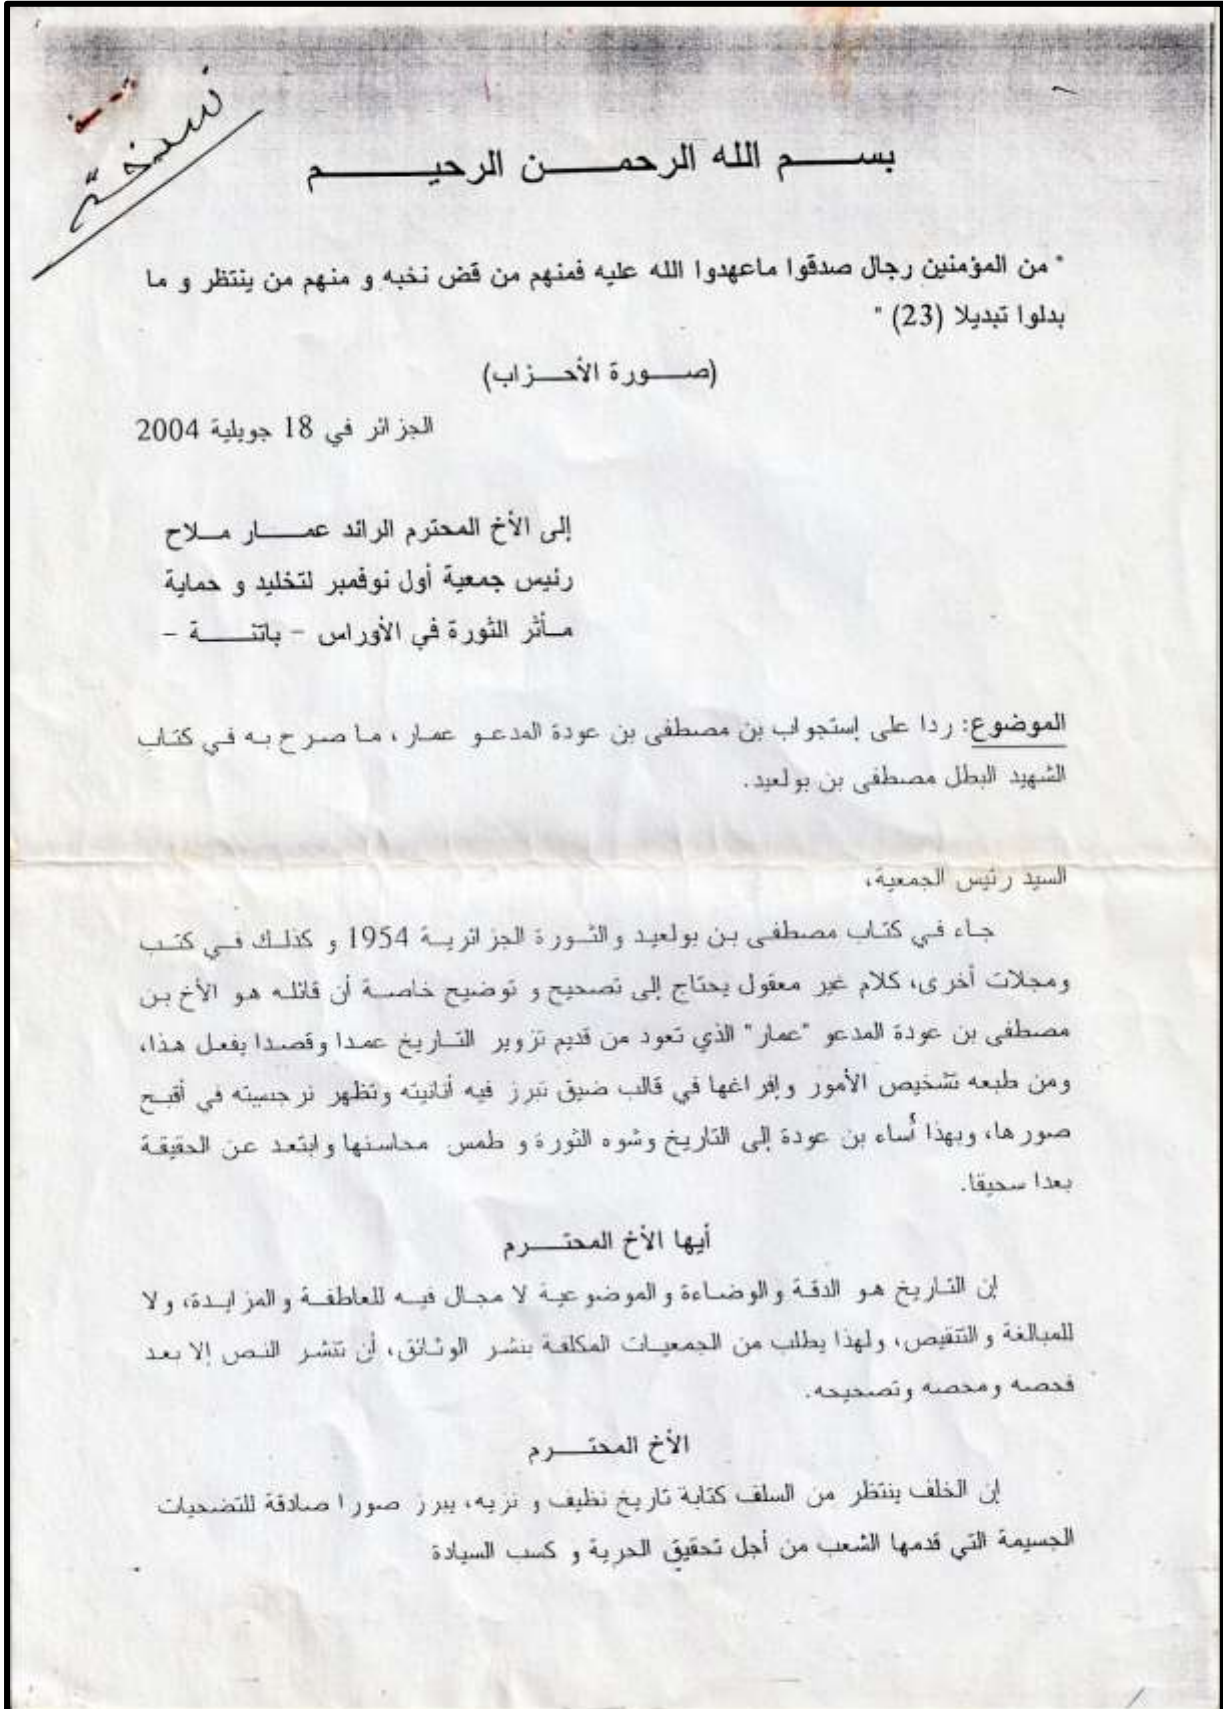 نسخة
بســـــم الله الرحمـــــن الرحيـــــــم
" من المؤمنين رجال صدقوا ماعهدوا الله عليه فمنهم من قض نخبه و منهم من ينتظر و ما
بدلوا تبديلا (23) "
(صـــــورة الأحـــزاب)
الجزائر في 18 جويلية 2004
إلى الأخ المحترم الرائد عمـــار مــلاح
رئيس جمعية أول نوفمبر لتخليد و حماية
مــأثر الثورة في الأوراس – باتنـــــة –
الموضوع: ردا على إستجواب بن مصطفى بن عودة المدعـو عمـار ، مـا صـرح بـه فـي كتـاب
الشهيد البطل مصطفى بن بولعيد.
السيد رئيس الجمعية،
جـاء فـي كتـاب مصطفـى بـن بولعيـد والثـورة الجزائريـة 1954 و كذلـك فـي كتـب
ومجلات أخرى، كلام غير معقول يحتاج إلى تصحيح و توضيح خاصـة أن قائلـه هـو الأخ بـن
مصطفى بن عودة المدعو "عمار" الذي تعود من قديم تزوير التـاريخ عمـدا وقصـدا بفعـل هـذا،
ومن طبعه تشخيص الأمور وإفراغها في قالب ضيق تبرز فيه أنانيته وتظهر نرجسيته في أقبـح
صورها، وبهذا أساء بن عودة إلى التاريخ وشوه الثورة و طمس محاسنها وابتعـد عـن الحقيقـة
بعدا سحيقا.
أيها الأخ المحتـــرم
إن التـاريخ هـو الدقـة والوضـاءة والموضـوعيـة لا مجـال فيـه للعاطفـة والمزايـدة، ولا
للمبالغة والتنقيص، ولهذا يطلب من الجمعيـات المكلفـة بنشـر الوثـائق، أن تنشـر النـص إلا بعـد
فحصه ومحصه وتصحيحه.
الأخ المحتـــــرم
إن الخلف ينتظر من السلف كتابة تاريخ نظيف و نزيه، يبرز صورا صادقة للتضحيات
الجسيمة التي قدمها الشعب من أجل تحقيق الحرية و كسب السيادة